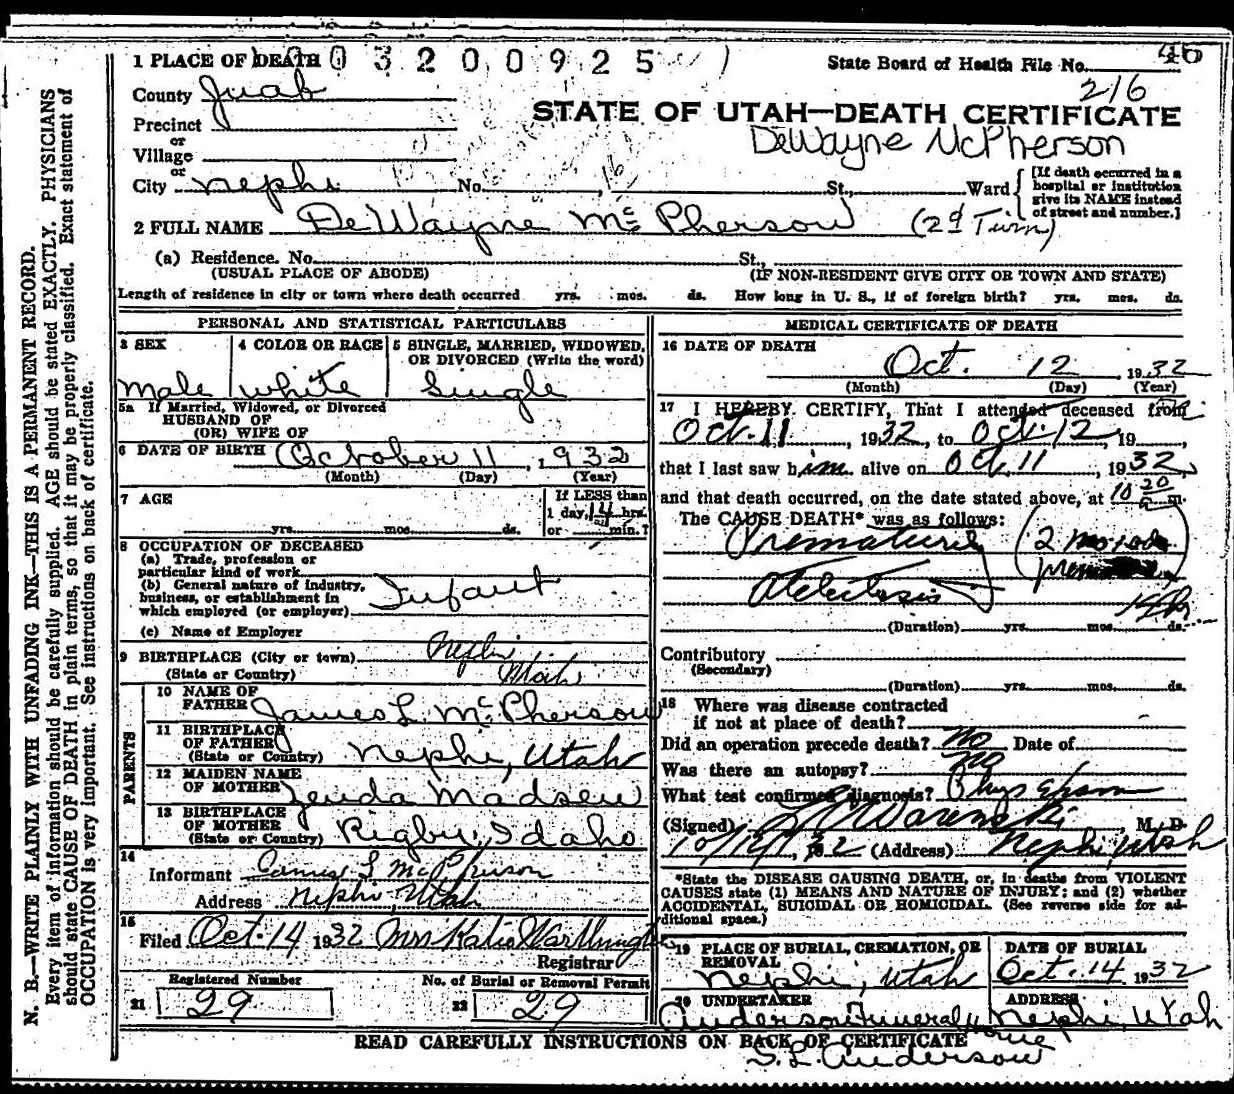 1 PLACE OF DEATH 0 3 2 0 0 9 2 5
State Board of Health File No. 46
216
County Juab
STATE OF UTAH—DEATH CERTIFICATE
Precinct
DeWayne McPherson
or
Village
or
City Nephi No. St., Ward
[If death occurred in a
hospital or institution
give its NAME instead
of street and number.]
2 FULL NAME DeWayne McPherson (2d Twin)
(a) Residence. No. St.,
(USUAL PLACE OF ABODE) (IF NON-RESIDENT GIVE CITY OR TOWN AND STATE)
Length of residence in city or town where death occurred yrs. mos. ds. How long in U. S., if of foreign birth? yrs. mos. ds.
PERSONAL AND STATISTICAL PARTICULARS
3 SEX 4 COLOR OR RACE 5 SINGLE, MARRIED, WIDOWED,
OR DIVORCED (Write the word)
male white Single
5a If Married, Widowed, or Divorced
HUSBAND OF
(OR) WIFE OF
6 DATE OF BIRTH October 11, 1932
(Month) (Day) (Year)
7 AGE
yrs. mos. ds.
If LESS than
1 day, 14 hrs.
or min.?
8 OCCUPATION OF DECEASED
(a) Trade, profession or
particular kind of work
(b) General nature of industry,
business, or establishment in
which employed (or employer) Infant
(c) Name of Employer
9 BIRTHPLACE (City or town) Nephi
(State or Country) Utah
PARENTS
10 NAME OF
FATHER James L. McPherson
11 BIRTHPLACE
OF FATHER
(State or Country) Nephi, Utah
12 MAIDEN NAME
OF MOTHER Madsen
13 BIRTHPLACE
OF MOTHER
(State or Country) Rigby, Idaho
14
Informant James L McPherson
Address Nephi, Utah
15
Filed Oct. 14 1932 Mrs Katie Worthington
Registrar
Registered Number No. of Burial or Removal Permit
21 29 22 29
MEDICAL CERTIFICATE OF DEATH
16 DATE OF DEATH
Oct. 12, 1932
(Month) (Day) (Year)
17 I HEREBY CERTIFY, That I attended deceased from
Oct. 11, 1932, to Oct. 12, 19
that I last saw him alive on Oct 11, 1932,
and that death occurred, on the date stated above, at 10 20 m.
The CAUSE DEATH* was as follows:
Prematurity (2 mo
Atelectasis
(Duration) yrs. mos. ds.
Contributory
(Secondary)
(Duration) yrs. mos. ds.
18 Where was disease contracted
if not at place of death?
Did an operation precede death? No Date of
Was there an autopsy? No
What test confirmed diagnosis? Phys Exam
(Signed) M. D.
(Address) Nephi Utah
*State the DISEASE CAUSING DEATH, or, in deaths from VIOLENT
CAUSES state (1) MEANS AND NATURE OF INJURY; and (2) whether
ACCIDENTAL, SUICIDAL OR HOMICIDAL. (See reverse side for ad-
ditional space.)
19 PLACE OF BURIAL, CREMATION, OR
REMOVAL
Nephi, Utah
DATE OF BURIAL
Oct. 14 1932
20 UNDERTAKER ADDRESS
Anderson Funeral Home Nephi, Utah
READ CAREFULLY INSTRUCTIONS ON BACK OF CERTIFICATE
S. L. Anderson
N. B.—WRITE PLAINLY WITH UNFADING INK—THIS IS A PERMANENT RECORD.
Every item of information should be carefully supplied. AGE should be stated EXACTLY. PHYSICIANS
should state CAUSE OF DEATH in plain terms, so that it may be properly classified. Exact statement of
OCCUPATION is very important. See instructions on back of certificate.